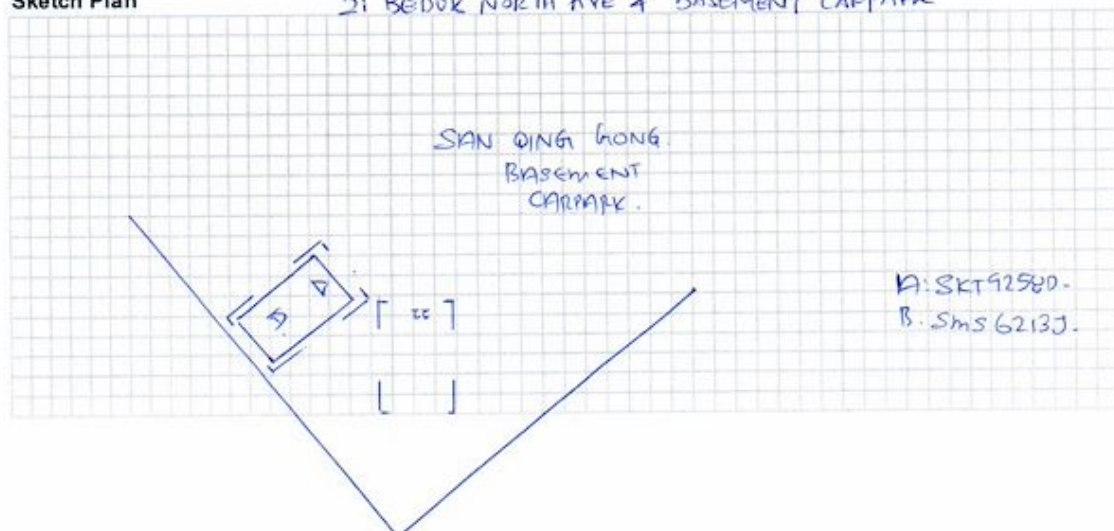 Sketch Plan
21 BEDOK NORTH AVE 4 BASEMENT CARPARK
SAN QING GONG.
BASEMENT
CARPARK.
22
A: SKT9258D.
B. SMS6213J.